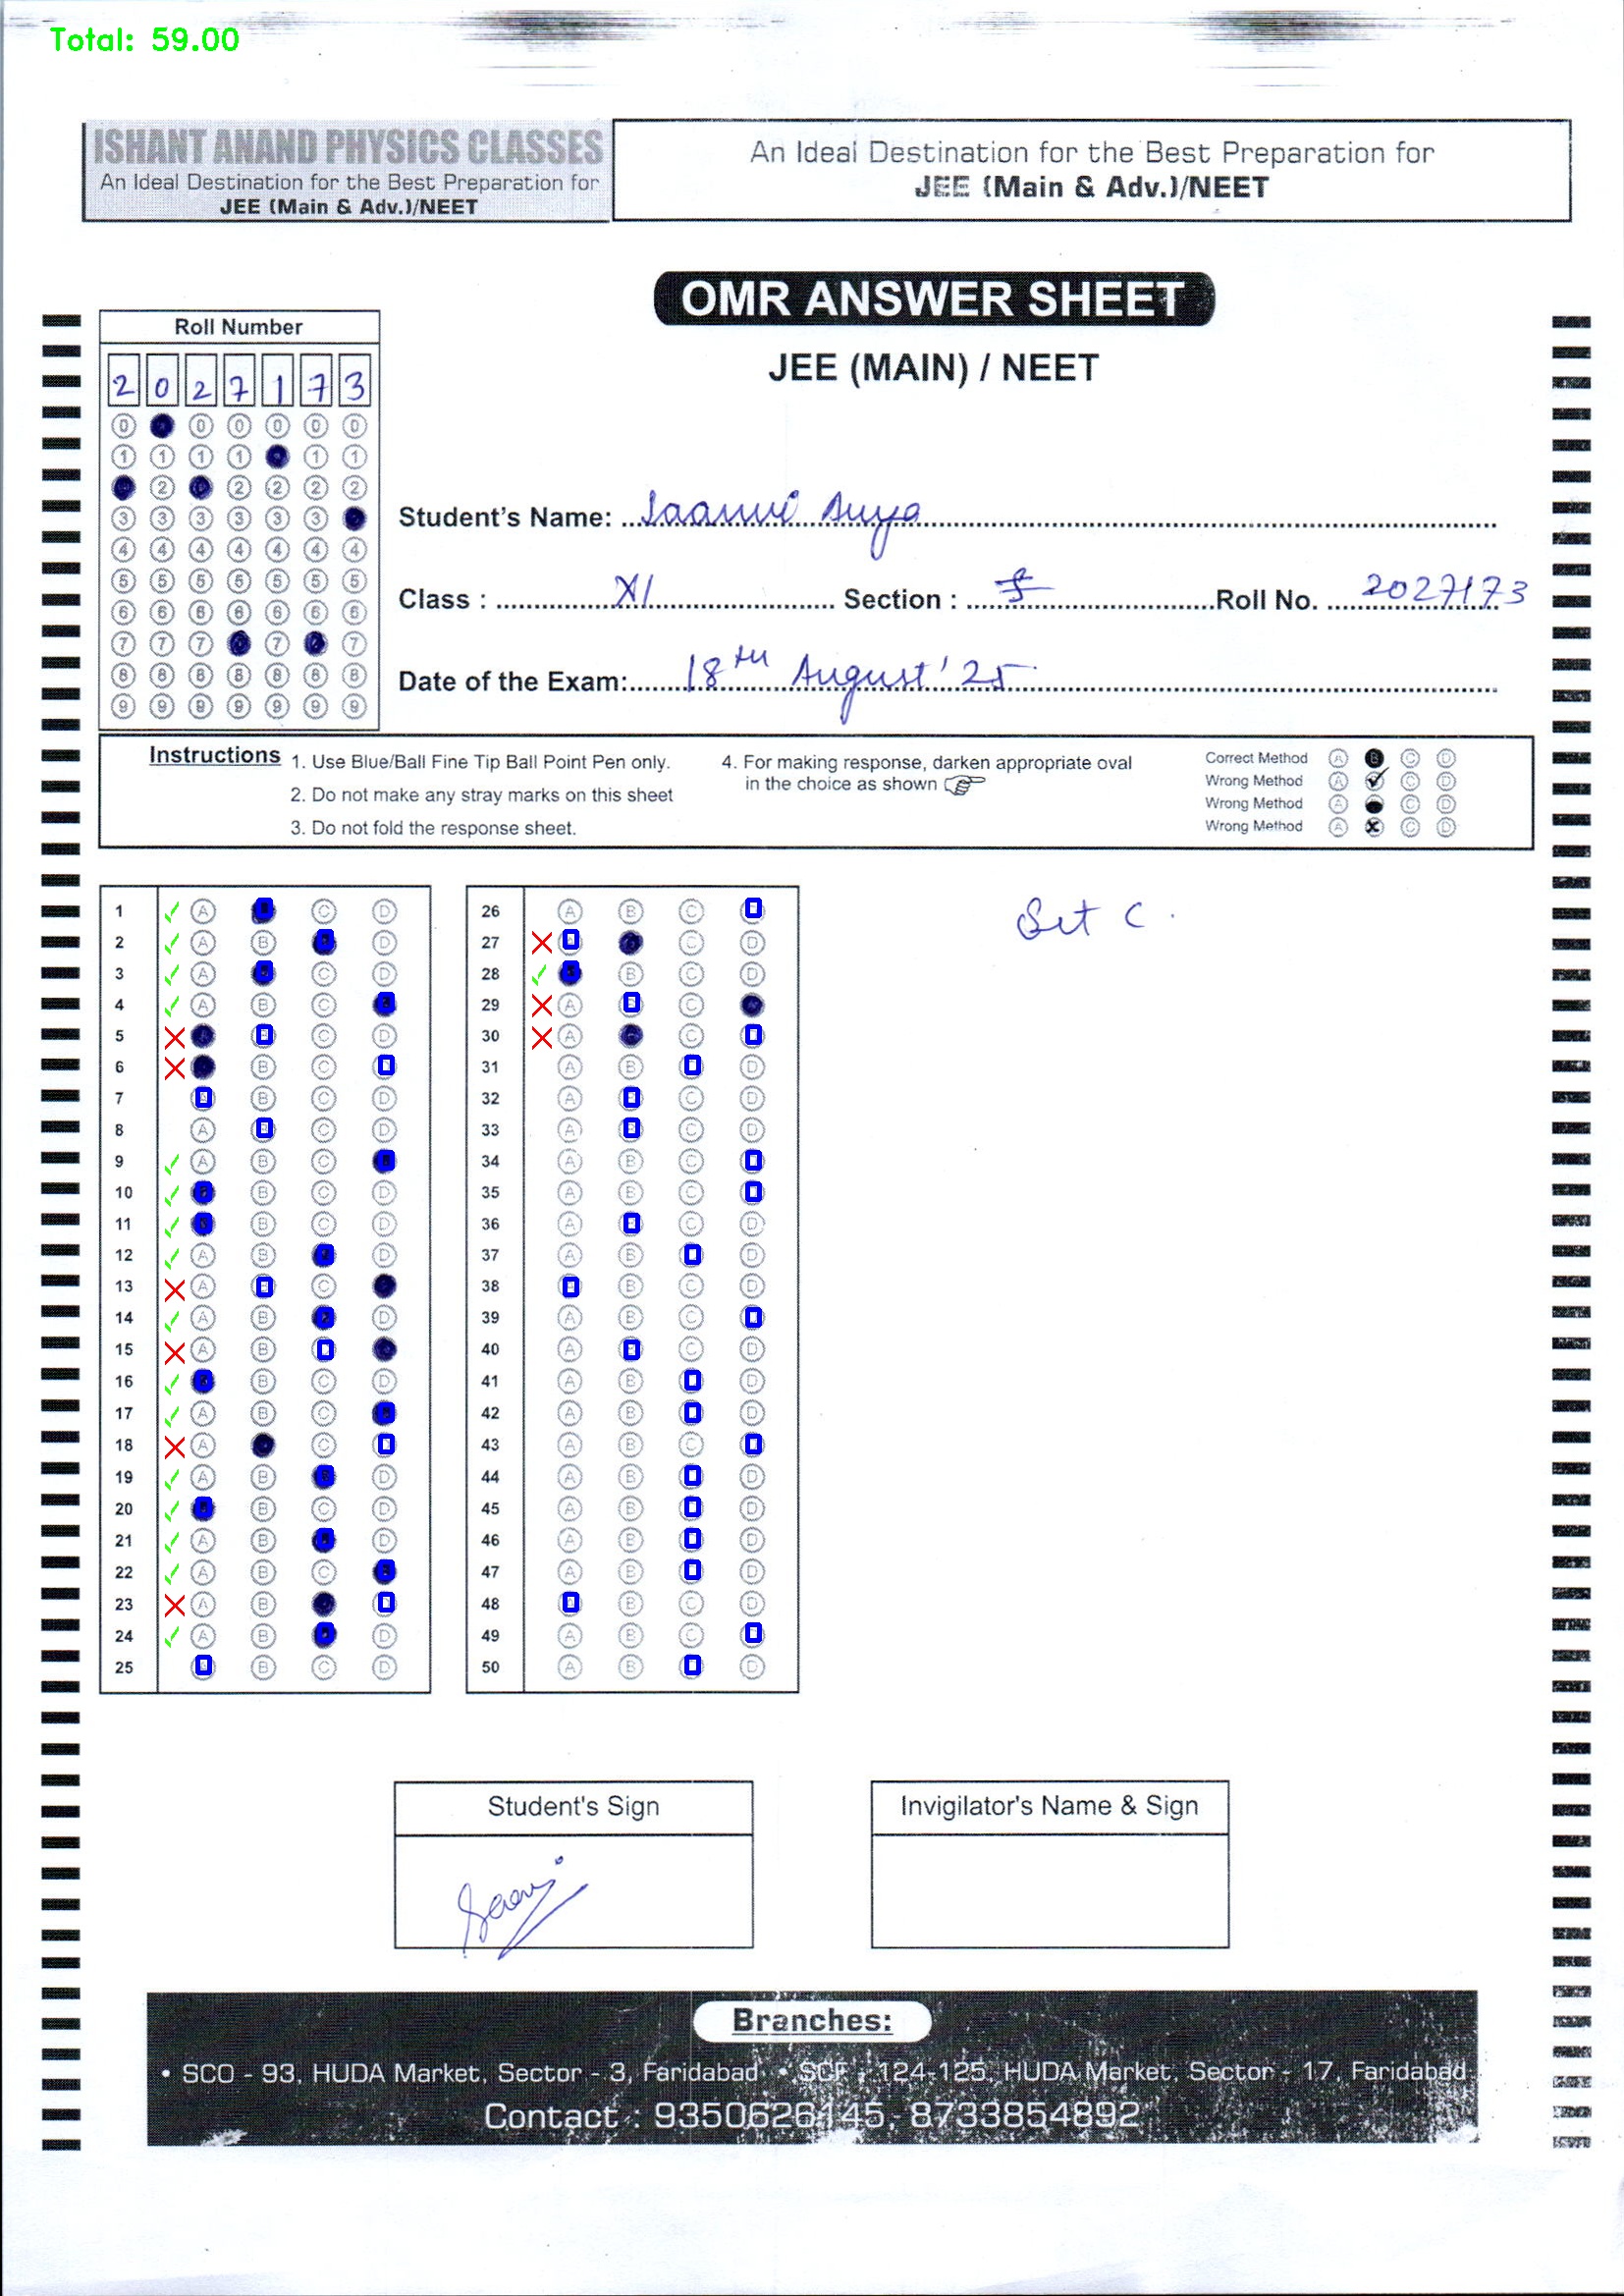 Total: 59.00
ISHANT ANAND PHYSICS CLASSES
An Ideal Destination for the Best Preparation for
JEE (Main & Adv.)/NEET
An Ideal Destination for the Best Preparation for
JEE (Main & Adv.)/NEET
OMR ANSWER SHEET
JEE (MAIN) / NEET
Roll Number
2 0 2 7 1 7 3
0 0 0 0 0 0
1 1 1 1 1 1
2 2 2 2 2
3 3 3 3 3 3
4 4 4 4 4 4 4
5 5 5 5 5 5 5
6 6 6 6 6 6 6
7 7 7 7 7
8 8 8 8 8 8 8
9 9 9 9 9 9 9
Student's Name:
Class : XI Section : Roll No. 2027173
Date of the Exam: 18th August '25
Instructions
1. Use Blue/Ball Fine Tip Ball Point Pen only.
2. Do not make any stray marks on this sheet
3. Do not fold the response sheet.
4. For making response, darken appropriate oval
in the choice as shown
Correct Method A B C D
Wrong Method A C D
Wrong Method A C D
Wrong Method A C D
1 A C D
2 A B D
3 A C D
4 A B C
5 C D
6 B C
7 B C D
8 A C D
9 A B C
10 B C D
11 B C D
12 A B D
13 A C
14 A B D
15 A B
16 B C D
17 A B C
18 A C
19 A B D
20 B C D
21 A B D
22 A B C
23 A B
24 A B D
25 B C D
26 A B C
27 C D
28 B C D
29 A C
30 A C
31 A B D
32 A C D
33 A C D
34 A B C
35 A B C
36 A C D
37 A B D
38 B C D
39 A B C
40 A C D
41 A B D
42 A B D
43 A B C
44 A B D
45 A B D
46 A B D
47 A B D
48 B C D
49 A B C
50 A B D
Set C.
Student's Sign
Invigilator's Name & Sign
Branches:
• SCO - 93, HUDA Market, Sector - 3, Faridabad • SCF - 124-125, HUDA Market, Sector - 17, Faridabad
Contact : 9350626145, 8733854892